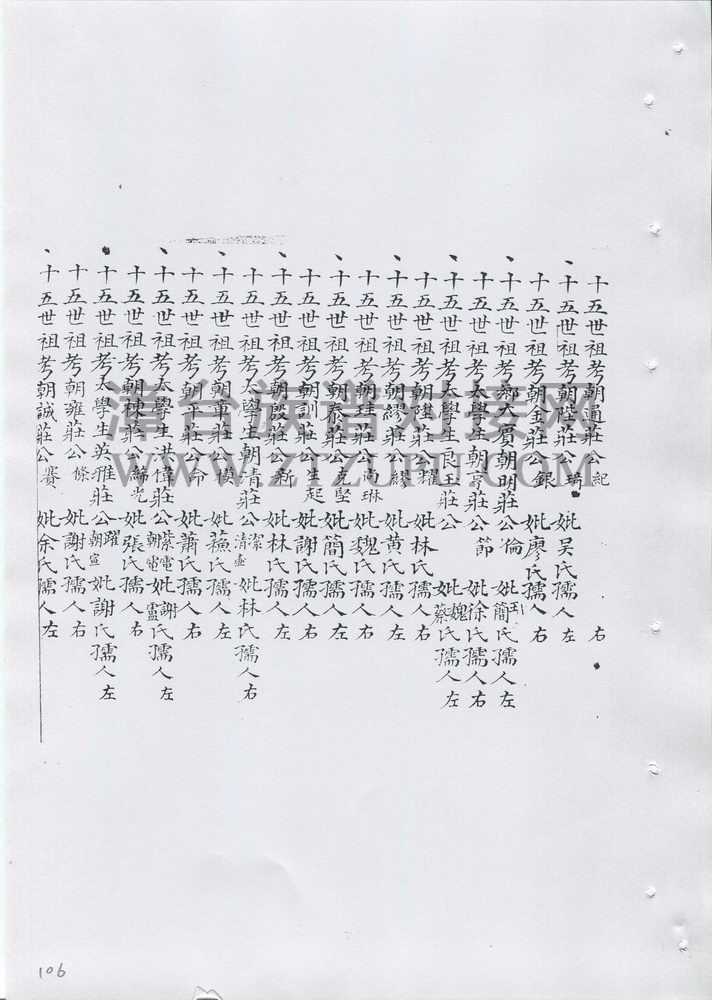 十五世祖考朝通莊公紀 右
十五世祖考朝陞莊公瑞 妣吴氏孺人左
十五世祖考朝金莊公銀 妣廖氏孺人右
十五世祖考鄉大賓朝明莊公倫 妣簡氏孺人左
十五世祖考太學生朝亨莊公節 妣徐氏孺人右
十五世祖考太學生良玉莊公 妣魏蔡氏孺人左
十五世祖考朝建莊公耀 妣林氏孺人右
十五世祖考朝繆莊公繆 妣黄氏孺人左
十五世祖考朝珪莊公尚琳 妣魏氏孺人右
十五世祖考朝泰莊公克堅 妣簡氏孺人左
十五世祖考朝訓莊公生起 妣謝氏孺人右
十五世祖考朝殷莊公新 妣林氏孺人左
十五世祖考太學生朝清莊公潔清壺 妣林氏孺人右
十五世祖考朝軍莊公模 妣蘓氏孺人左
十五世祖考朝平莊公命 妣蕭氏孺人右
十五世祖考太學生洪偉莊公紫電朝電 妣謝盧氏孺人左
十五世祖考朝棟莊公締光 妣張氏孺人右
十五世祖考太學生英雅莊公躍朝宣 妣謝氏孺人左
十五世祖考朝雍莊公條 妣謝氏孺人右
十五世祖考朝誠莊公賽 妣余氏孺人左
漳台族谱对接网
WWW.ZTZUPU.COM
106